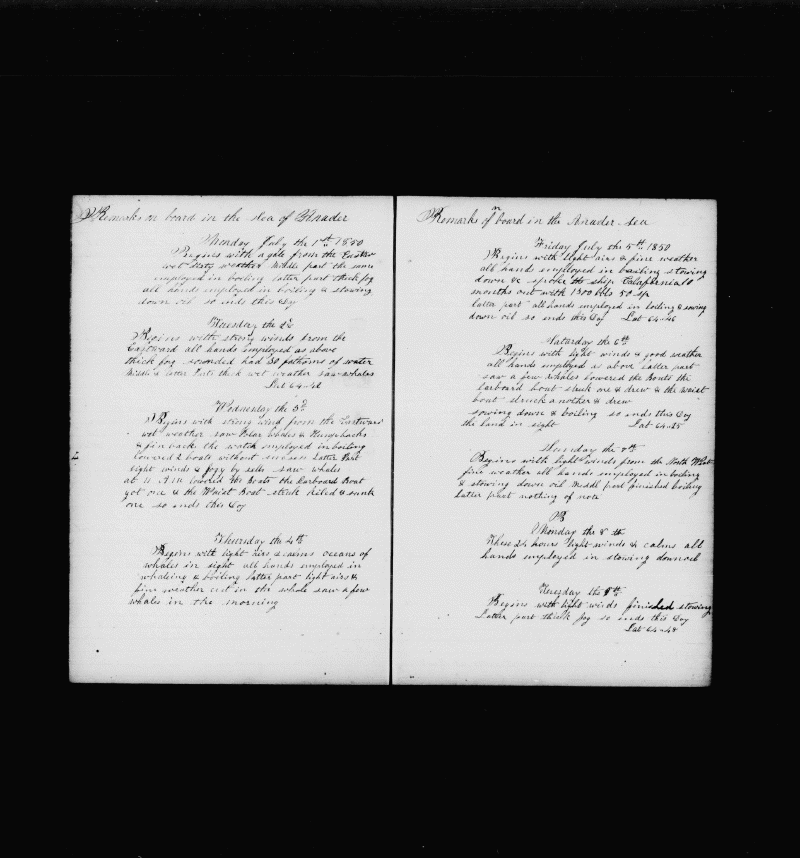 Remarks on board in the Sea of Anader
Monday July the 1st 1850
Begins with a gale from the Easter
wet dirty weather Middle part the same
employed in boiling latter part thick fog
all hands employed in boiling & stowing
down oil so ends this Day
Tuesday the 2d
Begins with strong winds from the
Eastward all hands employed as above
thick fog sounded had 30 fathoms of water
Middle & latter Parts thick wet weather saw whales
Lat 64-48
Wednesday the 3d
Begins with strong wind from the Eastward
wet weather saw Polar Whales & Humpbacks
& finback the watch employed in boiling
lowered 2 boats without success Latter Part
light winds & fogy by sells saw whales
at 11 A.M lowered the boats the Larboard Boat
got one & the Waist Boat struk kiled & sunk
one so ends this Day
Thursday the 4th
Begins with light airs & calms oceans of
whales in sight all hands employed in
whaleing & boiling latter part light airs &
fine weather cut in the whole saw a few
whales in the morning
Remarks on board in the Anader Sea
Friday July the 5th 1850
Begins with light airs & fine weather
all hands employed in boiling stowing
down & spoke the ship 10
months out with 1300 bbls 50 sp
latter part all hands employed in boiling & sowing
down oil so ends this Day Lat 64-46
Saturday the 6th
Begins with light winds & good weather
all hands employed as above latter part
saw a few whales lowered the boats the
larboard boat struk one & drew & the waist
boat struck another & drew
sowing down & boiling so ends this Day
the land in sight Lat 64-25
Sunday the 7th
Begins with light winds from the North West
fine weather all hands employed in boiling
& stowing down oil Middl part finished boiling
Latter part nothing of note
Monday the 8th
These 24 hours light winds & calms all
hands employed in stowing down oil
Tuesday the 9th
Begins with light winds finished stowing
Latter part thick fog so ends this Day
Lat 64-48